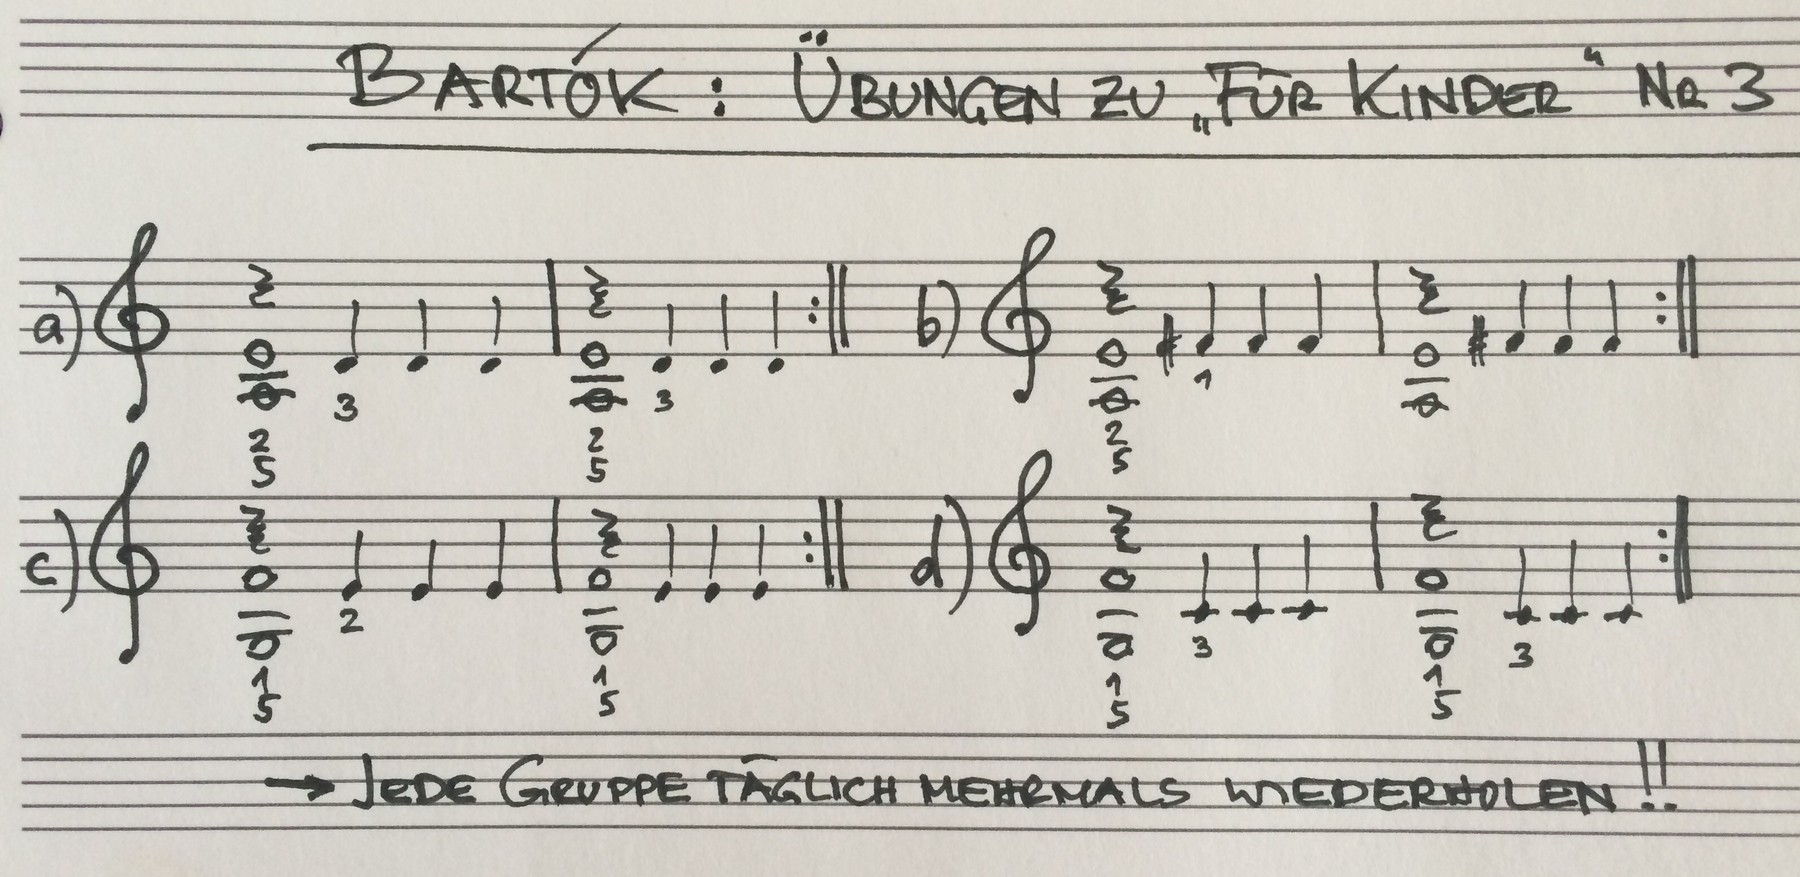 BARTÓK: ÜBUNGEN ZU „FÜR KINDER“ NR 3
a) 3 3 b) 1
2 2 2
5 5 5
c) 2 d) 3 3
1 1 1 1
5 5 5 5
→ JEDE GRUPPE TÄGLICH MEHRMALS WIEDERHOLEN!!